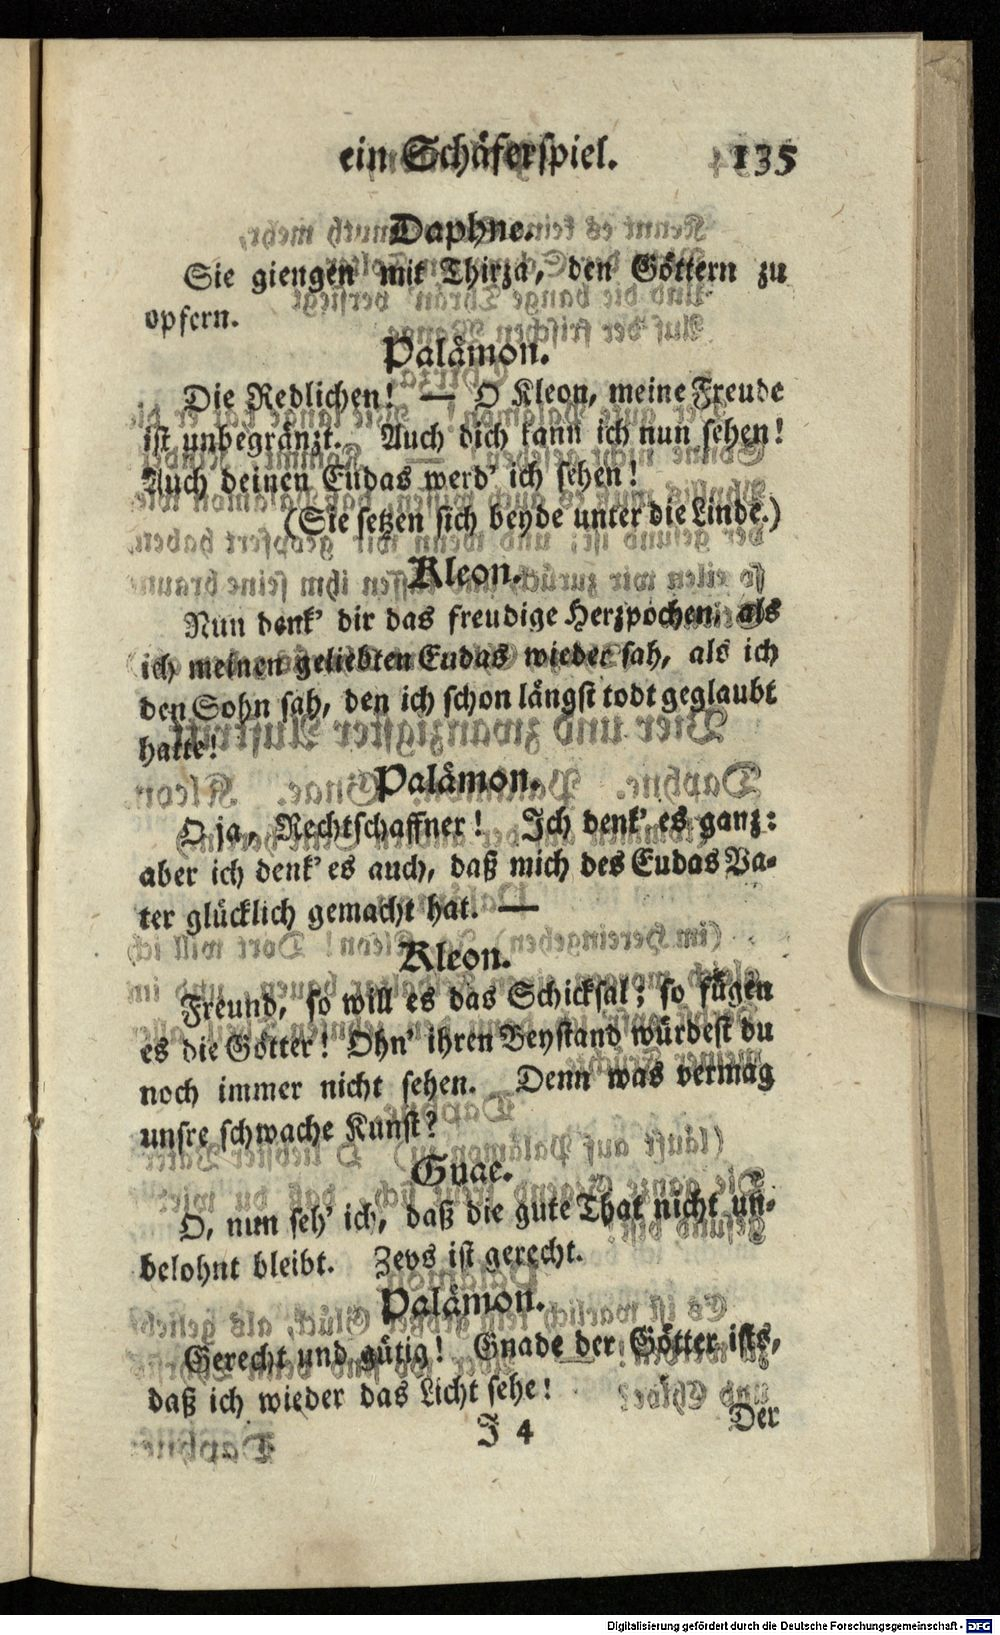 ein Schäferspiel. 135
Daphne.
Sie giengen mit Thirza, den Göttern zu
opfern.
Palämon.
Die Redlichen! — O Kleon, meine Freude
ist unbegränzt. Auch dich kann ich nun sehen!
Auch deinen Eudas werd' ich sehen!
(Sie setzen sich beyde unter die Linde.)
Kleon.
Nun denk' dir das freudige Herzpochen, als
ich meinen geliebten Eudas wieder sah, als ich
den Sohn sah, den ich schon längst todt geglaubt
hatte!
Palämon.
O ja, Rechtschaffner! Ich denk' es ganz:
aber ich denk' es auch, daß mich des Eudas Va-
ter glücklich gemacht hat. —
Kleon.
Freund, so will es das Schicksal; so fügen
es die Götter! Ohn' ihren Beystand würdest du
noch immer nicht sehen. Denn was vermag
unsre schwache Kunst?
Gnae.
O, nun seh' ich, daß die gute That nicht un-
belohnt bleibt. Zevs ist gerecht.
Palämon.
Gerecht und gütig! Gnade der Götter ists,
daß ich wieder das Licht sehe!
J 4 Der
Digitalisierung gefördert durch die Deutsche Forschungsgemeinschaft - DFG